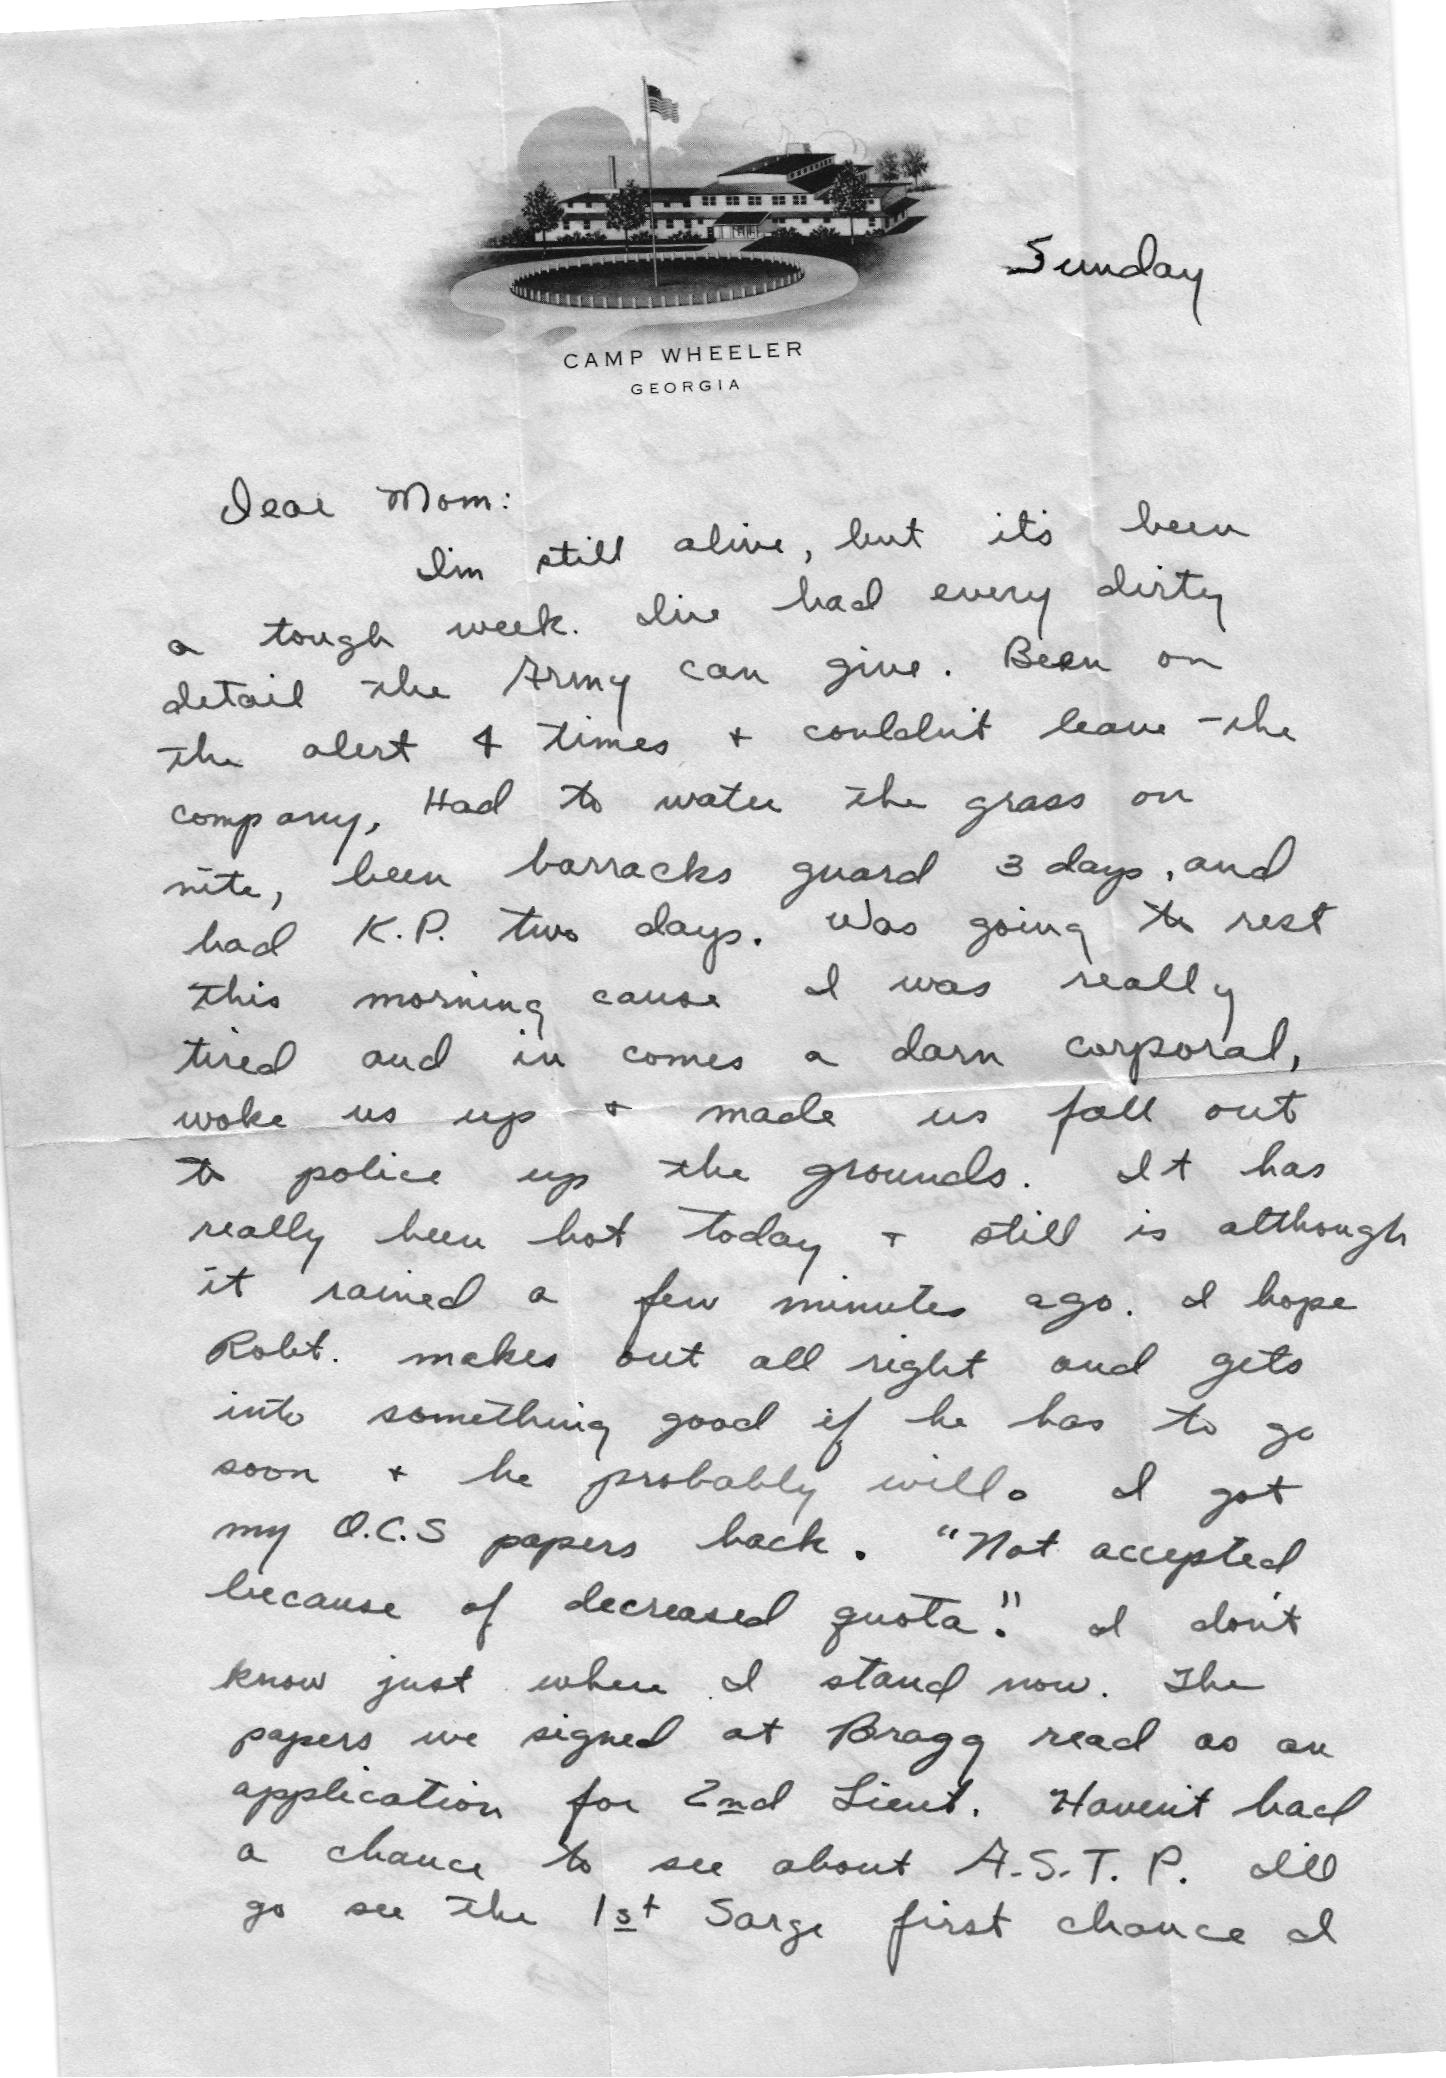 Sunday
CAMP WHEELER
GEORGIA
Dear Mom:
I'm still alive, but it's been
a tough week. I've had every dirty
detail the Army can give. Been on
the alert 4 times + couldn't leave the
company, Had to water the grass on
nite, been barracks guard 3 days, and
had K.P. two days. Was going to rest
this morning cause I was really
tired and in comes a darn corporal,
woke us up + made us fall out
to police up the grounds. It has
really been hot today + still is although
it rained a few minutes ago. I hope
Robt. makes out all right and gets
into something good if he has to go
soon + he probably will. I got
my O.C.S papers back. "Not accepted
because of decreased quota". I don't
know just where I stand now. The
papers we signed at Bragg read as an
application for 2nd Lieut. Haven't had
a chance to see about A.S.T.P. I'll
go see the 1st Sarge first chance I